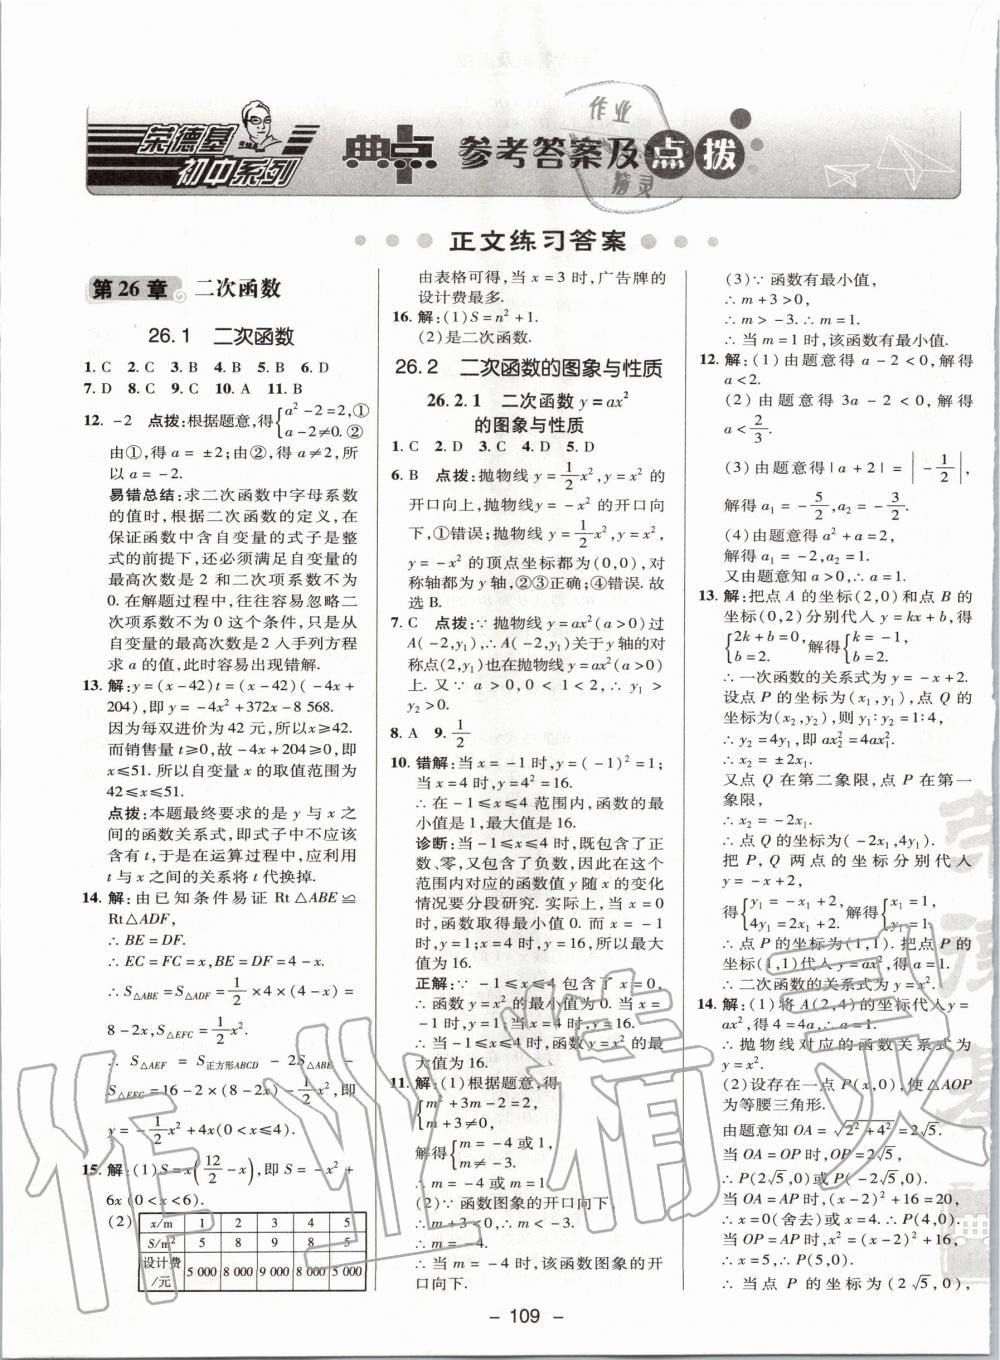 荣德基
初中系列
典点 参考答案及点拨
作业
精灵
正文练习答案
第26章 二次函数
26.1 二次函数
1. C 2. C 3. B 4. B 5. B 6. D
7. D 8. C 9. C 10. A 11. B
12. -2 点拨:根据题意,得{a²-2=2,① a-2≠0.②
由①,得 a= ±2;由②,得 a≠2,所
以 a=-2.
易错总结:求二次函数中字母系数
的值时,根据二次函数的定义,在
保证函数中含自变量的式子是整
式的前提下,还必须满足自变量的
最高次数是 2 和二次项系数不为
0. 在解题过程中,往往容易忽略二
次项系数不为 0 这个条件,只是从
自变量的最高次数是 2 入手列方程
求 a 的值,此时容易出现错解.
13. 解:y=(x-42)t=(x-42)(-4x+
204),即 y=-4x²+372x-8 568.
因为每双进价为 42 元,所以 x≥42.
而销售量 t≥0,故-4x+204≥0,即
x≤51. 所以自变量 x 的取值范围为
42≤x≤51.
点拨:本题最终要求的是 y 与 x 之
间的函数关系式,即式子中不应该
含有 t,于是在运算过程中,应利用
t 与 x 之间的关系将 t 代换掉.
14. 解:由已知条件易证 Rt△ABE≌
Rt△ADF,
∴ BE=DF.
∴ EC=FC=x,BE=DF=4-x.
∴ S△ABE=S△ADF=1/2×4×(4-x)=
8-2x,S△EFC=1/2x².
∴ S△AEF = S正方形ABCD - 2S△ABE -
S△EFC=16-2×(8-2x)-1/2x²,即
y=-1/2x²+4x(0<x≤4).
15. 解:(1)S=x(12/2-x),即 S=-x²+
6x (0<x<6).
(2) x/m 1 2 3 4 5
S/m² 5 8 9 8 5
设计费/元 5 000 8 000 9 000 8 000 5 000
由表格可得,当 x=3 时,广告牌的
设计费最多.
16. 解:(1)S=n²+1.
(2)是二次函数.
26.2 二次函数的图象与性质
26.2.1 二次函数 y=ax²
的图象与性质
1. C 2. D 3. C 4. D 5. D
6. B 点拨:抛物线 y=1/2x²,y=x² 的
开口向上,抛物线 y=-x² 的开口向
下,①错误;抛物线 y=1/2x²,y=x²,
y=-x² 的顶点坐标都为(0,0),对
称轴都为 y 轴,②③正确;④错误.故
选 B.
7. C 点拨:∵ 抛物线 y=ax²(a>0)过
A(-2,y₁),∴ A(-2,y₁)关于 y 轴的对
称点(2,y₁)也在抛物线 y=ax²(a>0)
上. 又∵ a>0,0<1<2,∴ y₁>
y₂>0.
8. A 9. 1/2
10. 错解:当 x=-1 时,y=(-1)²=1;
当 x=4 时,y=4²=16.
∴ 在-1≤x≤4 范围内,函数的最
小值是 1,最大值是 16.
诊断:当-1≤x≤4 时,既包含了正
数、零,又包含了负数,因此在这个
范围内对应的函数值 y 随 x 的变化
情况要分段研究. 实际上,当 x=0
时,函数取得最小值 0. 而 x=-1
时,y=1;x=4 时,y=16,所以最大
值为 16.
正解:∵ -1≤x≤4 包含了 0,
∴ 函数 y=x² 的最小值为 0. 当 x=
-1 时,y=1;当 x=4 时,y=16.
∴ 当-1≤x≤4 时,函数 y=x² 的最
大值为 16.
11. 解:(1)根据题意,得
{m²+3m-2=2,
m+3≠0,
解得{m=-4或1,
m≠-3.
(2)∵ 函数图象的开口向下,
∴ m+3<0,∴ m<-3.
∴ m=-4.
∴ 当 m=-4 时,该函数图象的开
口向下.
(3)∵ 函数有最小值,
∴ m+3>0,
∴ m>-3. ∴ m=1.
∴ 当 m=1 时,该函数有最小值.
12. 解:(1)由题意得 a-2<0,解得
a<2.
(2)由题意得 3a-2<0,解得
a<2/3.
(3)由题意得|a+2|=|-1/2|,
解得 a₁=-5/2,a₂=-3/2.
(4)由题意得 a²+a=2,
解得 a₁=-2,a₂=1.
又由题意知 a>0,∴ a=1.
13. 解:把点 A 的坐标(2,0)和点 B 的
坐标(0,2)分别代入 y=kx+b,得
{2k+b=0, b=2. 解得{k=-1, b=2.
∴ 一次函数的关系式为 y=-x+2.
设点 P 的坐标为(x₁,y₁),点 Q 的
坐标为(x₂,y₂),则 y₁:y₂=1:4,
∴ y₂=4y₁,即 ax₂²=4ax₁².
∴ x₂=±2x₁.
又点 Q 在第二象限,点 P 在第一
象限,
∴ x₂=-2x₁.
∴ 点 Q 的坐标为(-2x₁,4y₁).
把 P,Q 两点的坐标分别代入
y=-x+2,
得{y₁=-x₁+2, 4y₁=2x₁+2, 解得{x₁=1, y₁=1.
∴ 点 P 的坐标为(1,1). 把点 P 的
坐标(1,1)代入 y=ax²,得 a=1.
∴ 二次函数的关系式为 y=x².
14. 解:(1)将 A(2,4)的坐标代入 y=
ax²,得 4=4a,∴ a=1.
∴ 抛物线对应的函数关系式为
y=x².
(2)设存在一点 P(x,0),使△AOP
为等腰三角形.
由题意知 OA=√(2²+4²)=2√5.
当 OA=OP 时,OP=2√5,
∴ P(2√5,0)或 P(-2√5,0).
当 OA=AP 时,(x-2)²+16=20,
∴ x=0(舍去)或 x=4. ∴ P(4,0).
当 OP=AP 时,x²=(x-2)²+16,
∴ x=5. ∴ P(5,0).
∴ 当点 P 的坐标为(2√5,0),
- 109 -
作业精灵